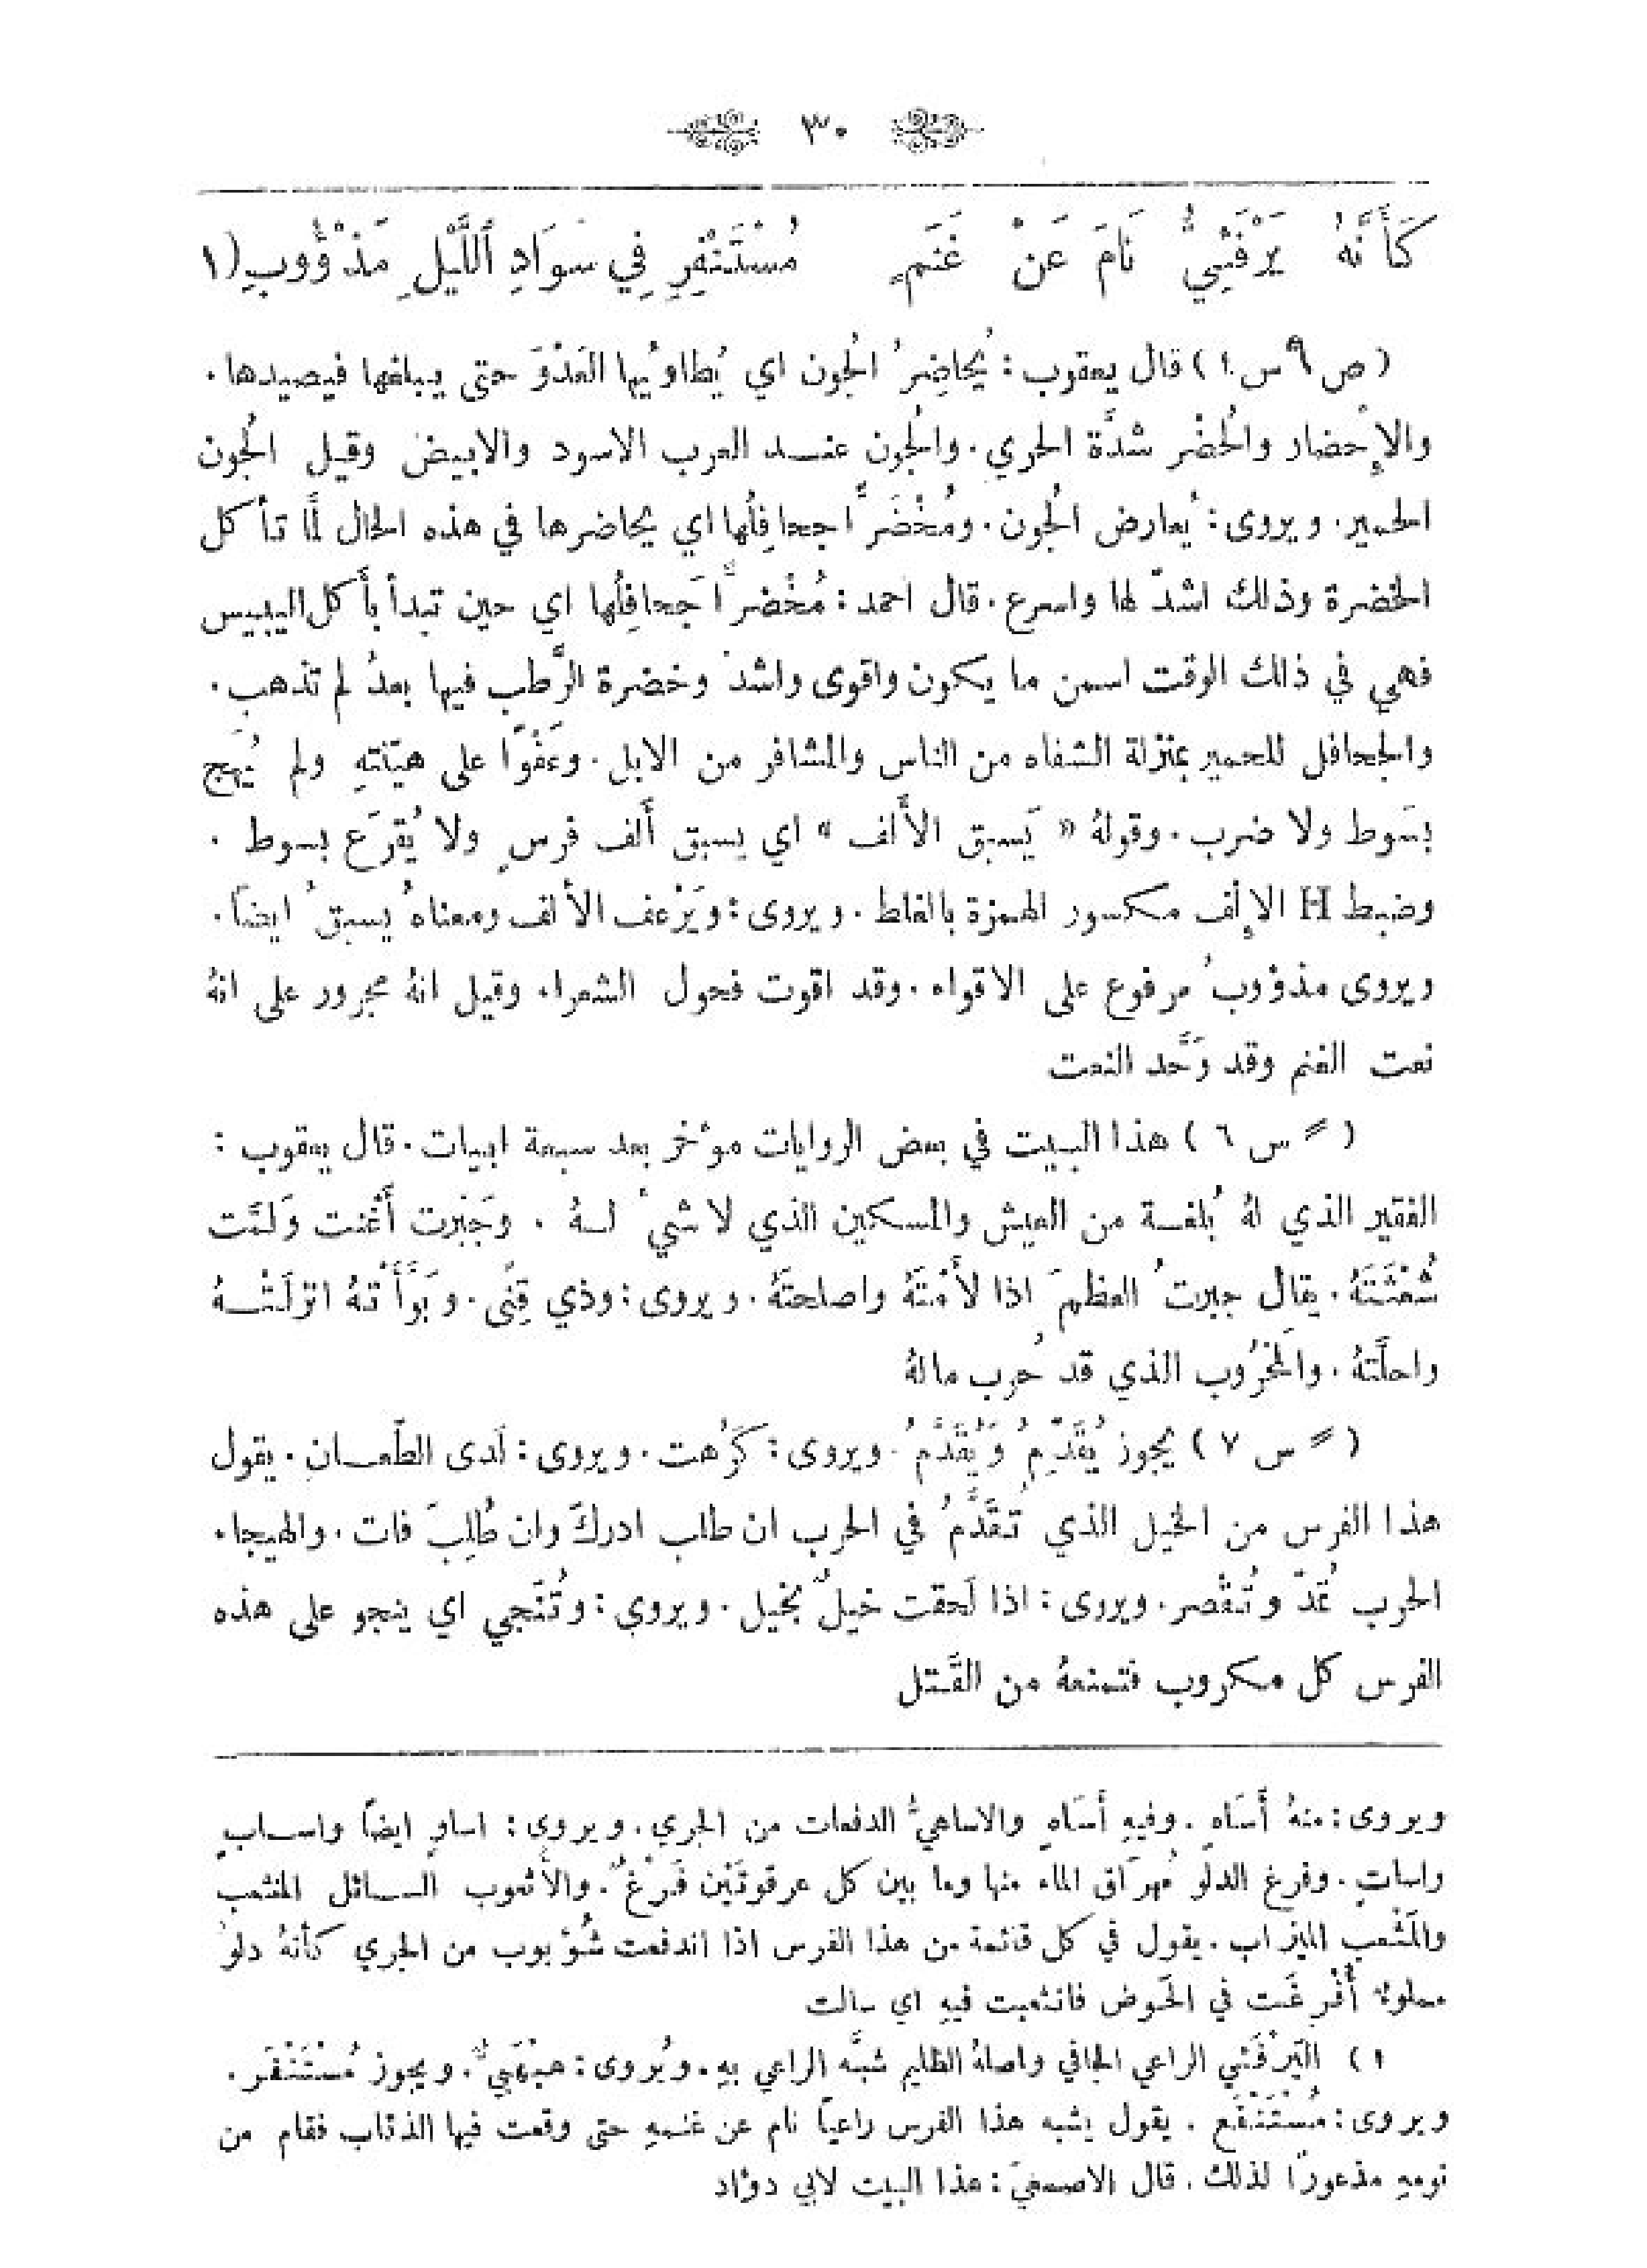 ٣٠
كَأَنَّهُ يَرْفَئِيٌّ نَامَ عَنْ غَنَمٍ مُسْتَنْفِرٍ فِي سَوَادِ ٱللَّيْلِ مَذْؤُوبِ (١
(ص ٩ س ١) قال يعقوب: يُحاضِرُ الجُون اي يُطاولُها العَدْوَ حتى يبلغها فيصيدها.
والإِحضار والحُضْر شدَّة الجري. والجُون عنـد العرب الاسود والابيض وقيل الجُون
الحمير. ويروى: يُعارض الجُون. ومُخْضَرًّا جحافِلُها اي يحاضرها في هذه الحال لَمَّا تأكل
الخضرة وذلك اشدّ لها واسرع. قال احمد: مُخْضرًّا جَحافِلُها اي حين تبدأ بأَكل اليبيس
فهي في ذلك الوقت اسمن ما يكون واقوى واشدّ وخضرة الرَّطب فيها بعدُ لم تذهب.
والجحافل للحمير بمنزلة الشفاه من الناس والمشافر من الابل. وعَفْوًا على هيّنتهِ ولم يُهَج
بسَوط ولا ضرب. وقولهُ « يَسبق الأَلف » اي يسبق أَلف فرسٍ ولا يُقرَع بسوط.
وضبط H الإِلف مكسور الهمزة بالغلط. ويروى: ويَرْعف الأَلف ومعناهُ يسبقُ ايضاً.
ويروى مذؤوبُ مرفوع على الاقواء. وقد اقوت فحول الشعراء وقيل انهُ مجرور على انهُ
نعت الغنم وقد وَحَّد النعت
( = س ٦ ) هذا البيت في بعض الروايات مؤخر بعد سبعة ابيات. قال يعقوب:
الفقير الذي لهُ بُلغـة من العيش والمسكين الذي لا شيءَ لـهُ. وجَبَرت أَغْنت ولَمَّت
شُعْثَتَهُ. يقال جبرتُ العظمَ اذا لأَمْتَهُ واصلحتَهُ. ويروى: وذي قِنًى. وبَوَّأَتهُ انزلَتْـهُ
واحلَّتهُ. والمَحْرُوب الذي قد حُرِب مالهُ
( = س ٧ ) يجوز يُقَدِّمُ ويُقَدَّمُ. ويروى: كَرُهت. ويروى: لَدى الطّعـان. يقول
هذا الفرس من الخيل الذي تُقَدَّمُ في الحرب ان طلب ادركَ وان طُلِبَ فات. والهيجاء
الحرب تُمَدّ وتُقْصر. ويروى: اذا لَحقت خيلٌ بخيل. ويروى: وتُنَجي اي ينجو على هذه
الفرس كل مكروب فتمنعهُ من القَتل
ويروى: منهُ أَسَاهٍ. وفيهِ أَسَاهٍ والاساهيُّ الدفعات من الجري. ويروى: اساوٍ ايضًا واسـابٍ
واساتٍ. وفرغ الدلو مُهرَاق الماء منها وما بين كل عرقوتَيْن فَرْغٌ. والأُثعوب السـائل المنثعب
والمَثْعب الميزاب. يقول في كل قائمة من هذا الفرس اذا اندفعت شُؤْبوب من الجري كأَنهُ دلوٌ
مملوءة أُفْرغَت في الحَوض فانثعبت فيهِ اي سالت
١) اليَرْفَئي الراعي الجافي واصلهُ الظليم شبَّه الراعي بهِ. ويُروى: هَيْبَيٌّ. ويجوز مُسْتَنْفَر.
ويروى: مُسْتَنْقَع. يقول يشبه هذا الفرس راعيًا نام عن غنمهِ حتى وقعت فيها الذئاب فقام من
نومهِ مذعورًا لذلك. قال الاصمعيّ: هذا البيت لابي دؤاد